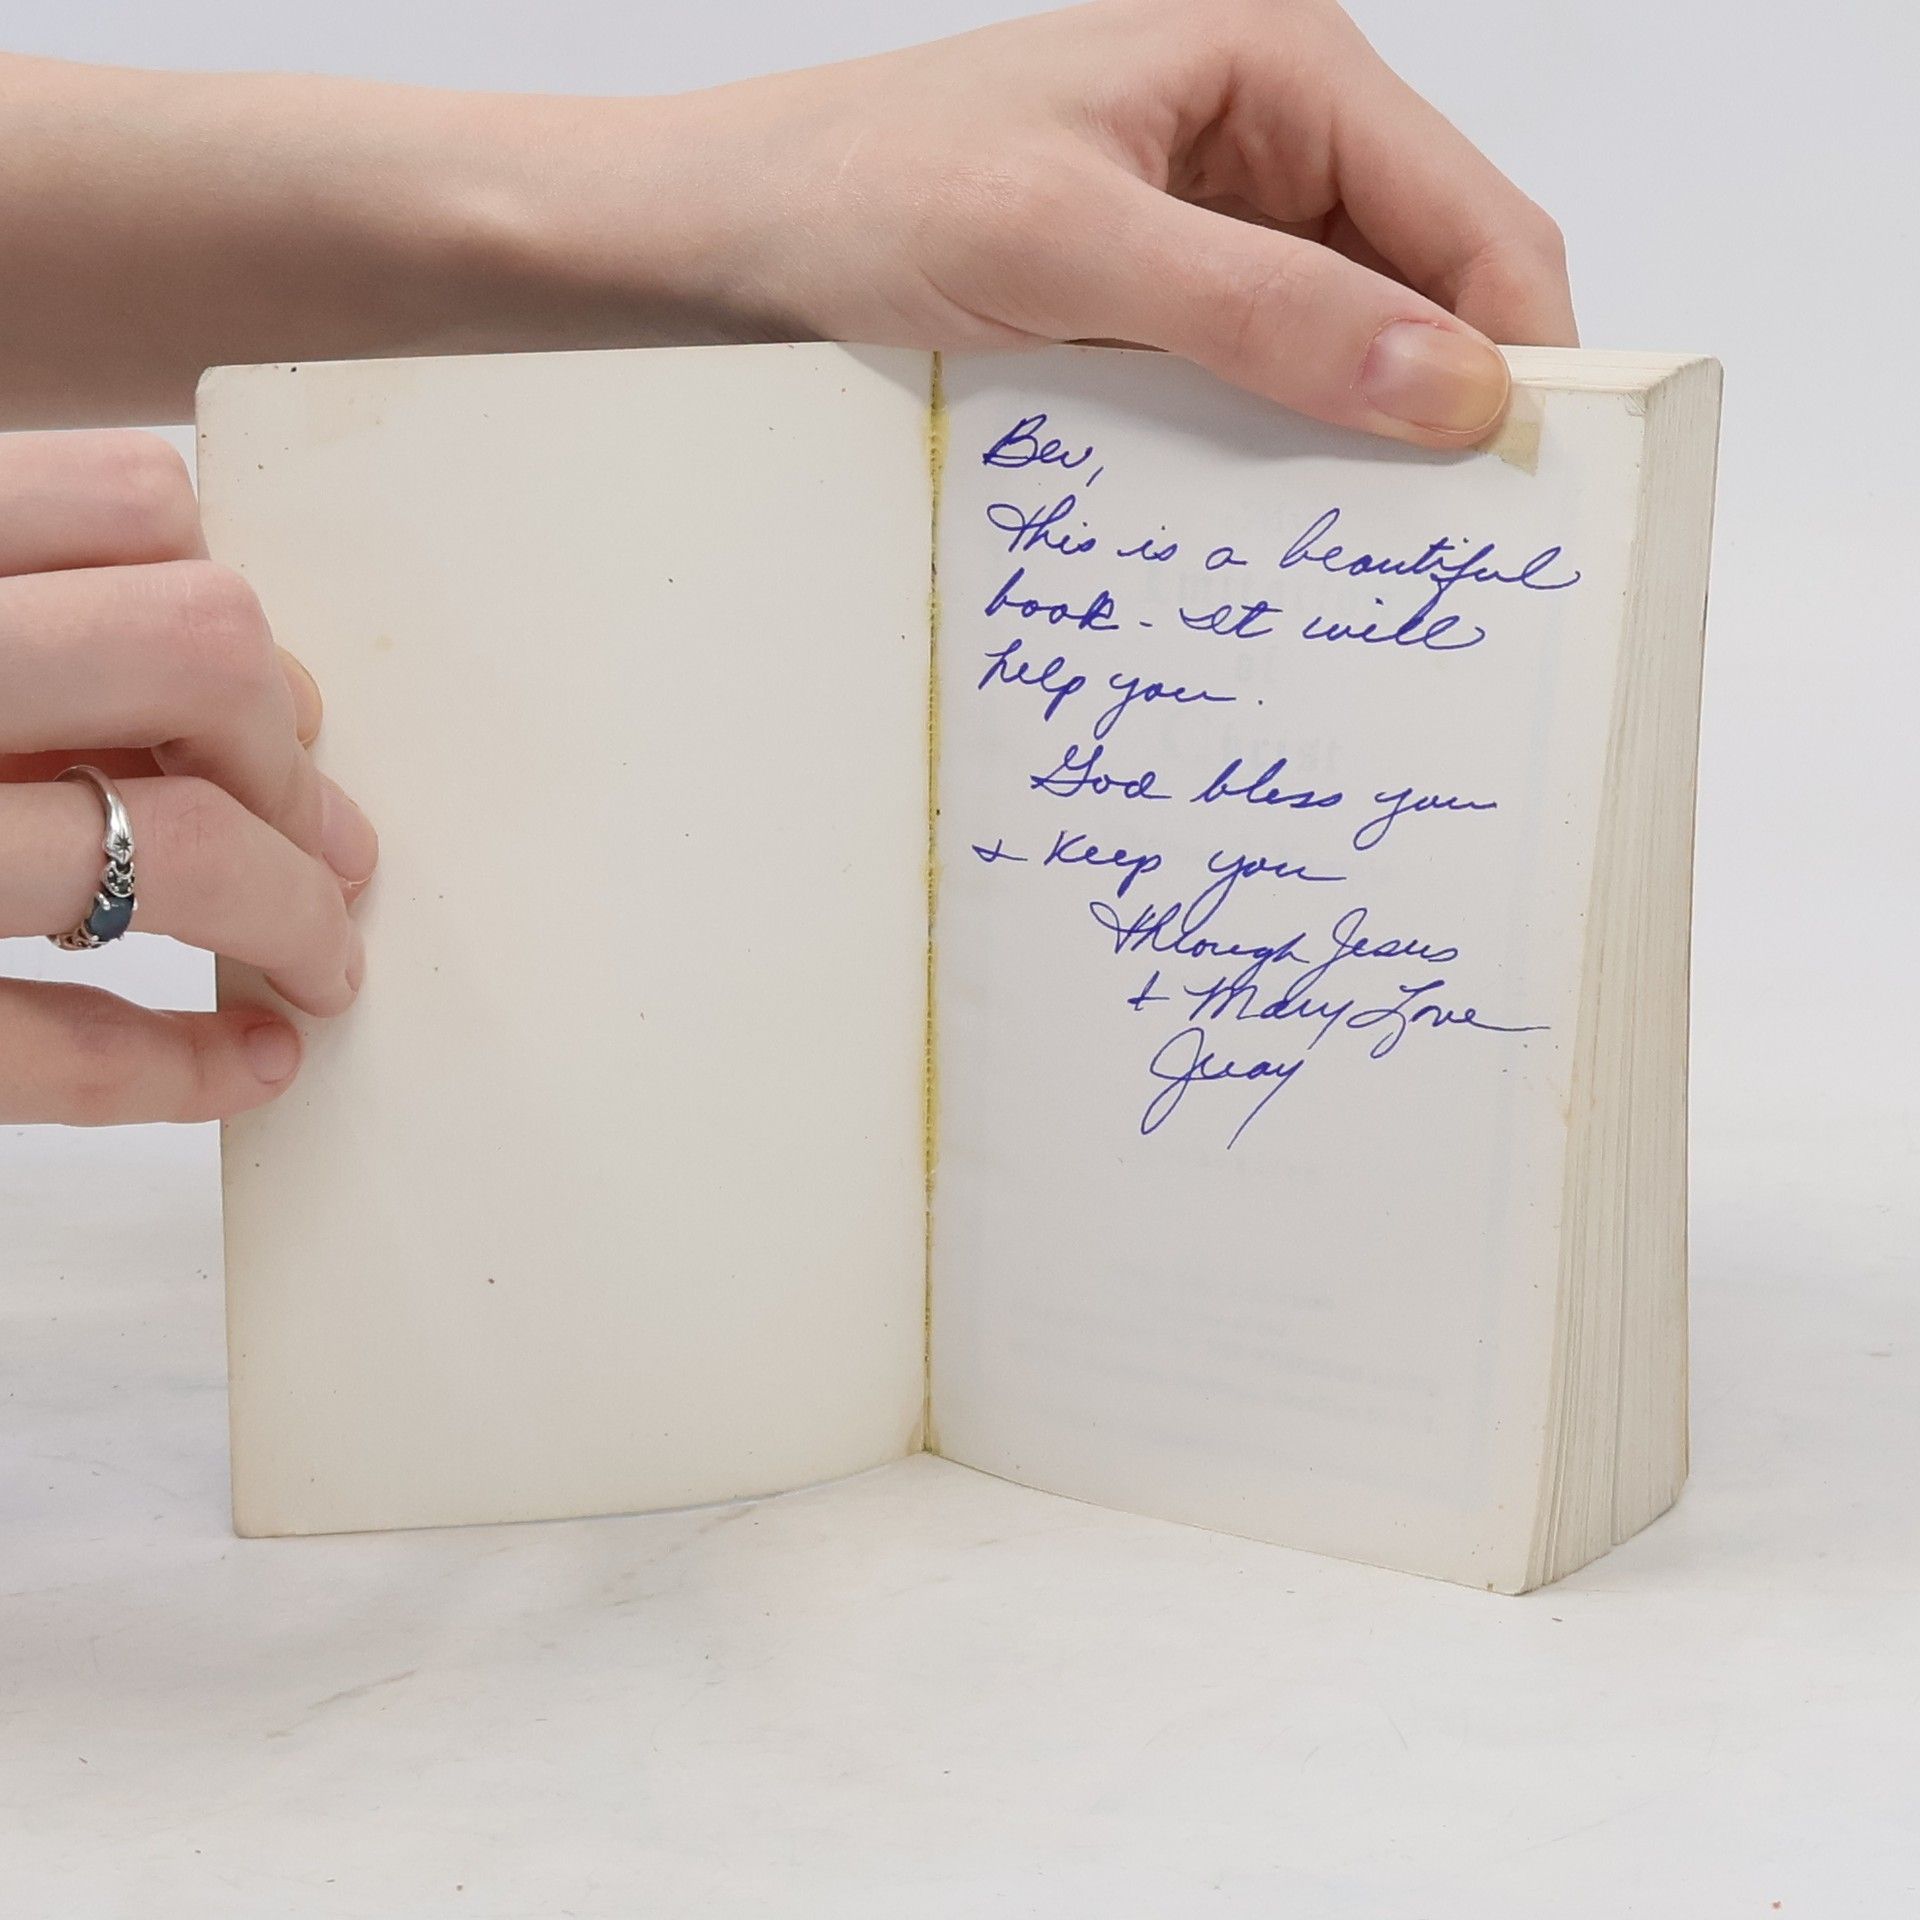 Bev,
This is a beautiful
book - It will
help you.
God bless you
& Keep you
through Jesus
& Mary Love